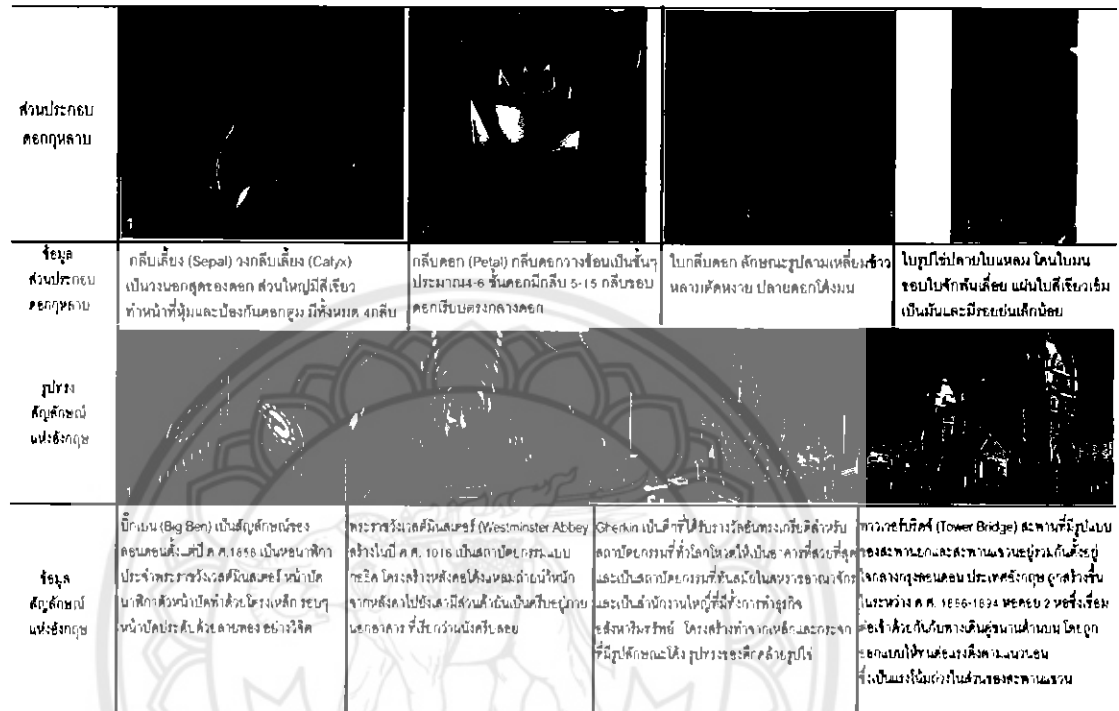 ส่วนประกอบ
ดอกกุหลาบ
1
ข้อมูล
ส่วนประกอบ
ดอกกุหลาบ
กลีบเลี้ยง (Sepal) วงกลีบเลี้ยง (Calyx)
เป็นวงนอกสุดของดอก ส่วนใหญ่มีสีเขียว
ทำหน้าที่หุ้มและป้องกันดอกตูม มีทั้งหมด 4กลีบ
กลีบดอก (Petal) กลีบดอกวางซ้อนเป็นชั้นๆ
ประมาณ4-6 ชั้นดอกมีกลีบ 5-15 กลีบขอบ
ดอกเรียบตรงกลางดอก
ใบกลีบดอก ลักษณะรูปสามเหลี่ยมข้าว
หลามตัดหงาย ปลายดอกโค้งมน
ใบรูปไข่ปลายใบแหลม โคนใบมน
ขอบใบจักฟันเลื่อย แผ่นใบสีเขียวเข้ม
เป็นมันและมีรอยย่นเล็กน้อย
รูปทรง
สัญลักษณ์
แห่งอังกฤษ
1
ข้อมูล
สัญลักษณ์
แห่งอังกฤษ
บิ๊กเบน (Big Ben) เป็นสัญลักษณ์ของ
ลอนดอนตั้งแต่ปี ค.ศ.1858 เป็นหอนาฬิกา
ประจำพระราชวังเวสต์มินสเตอร์ หน้าปัด
นาฬิกาตัวหน้าปัดทำด้วยโครงเหล็ก รอบๆ
หน้าปัดประดับด้วยลายทองอย่างวิจิต
พระราชวังเวสต์มินสเตอร์ (Westminster Abbey
สร้างในปี ค.ศ. 1016 เป็นสถาปัตยกรรมแบบ
กอธิค โครงสร้างหลังคอโค้งแหลมถ่ายน้ำหนัก
จากหลังคาไปยังเสามีส่วนค้ำยันเป็นครีบอยู่ภาย
นอกอาคาร ที่เรียกว่าผนังครีบลอย
Gherkin เป็นตึกที่ได้รับรางวัลอันทรงเกียรติสำหรับ
สถาปัตยกรรมที่ทั่วโลกโหวตให้เป็นอาคารที่สวยที่สุด
และเป็นสถาปัตยกรรมที่ทันสมัยในสหราชอาณาจักร
และเป็นสำนักงานใหญ่ที่มีทั้งการทำธุรกิจ
อสังหาริมทรัพย์ โครงสร้างทำจากเหล็กและกระจก
ที่มีรูปลักษณะโค้ง รูปทรงของตึกคล้ายรูปไข่
ทาวเวอร์บริดจ์ (Tower Bridge) สะพานที่มีรูปแบบ
ของสะพานยกและสะพานแขวนอยู่รวมกันตั้งอยู่
ใจกลางกรุงลอนดอน ประเทศอังกฤษ ถูกสร้างขึ้น
ในระหว่าง ค.ศ. 1886-1894 หอคอย 2 หอซึ่งเชื่อม
ต่อเข้าด้วยกันกับทางเดินคู่ขนานด้านบน โดยถูก
ออกแบบให้ทนต่อแรงดึงตามแนวนอน
ซึ่งเป็นแรงโน้มถ่วงในส่วนของสะพานแขวน